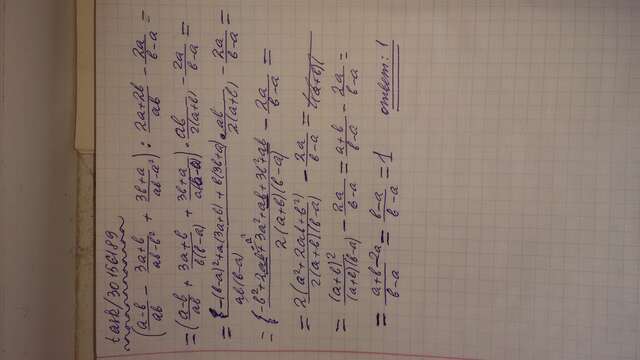 task/30156189
(a-b/ab - 3a+b/ab-b² + 3b+a/ab-a²) : 2a+2b/ab - 2a/b-a =
= (a-b/ab + 3a+b/b(b-a) + 3b+a/a(b-a)) · ab/2(a+b) - 2a/b-a =
= -(b-a)²+a(3a+b)+b(3b+a)/ab(b-a) · ab/2(a+b) - 2a/b-a =
= -b²+2ab-a²+3a²+ab+3b²+ab/2(a+b)(b-a) - 2a/b-a =
= 2(a²+2ab+b²)/2(a+b)(b-a) - 2a/b-a =
= (a+b)²/(a+b)(b-a) - 2a/b-a = a+b/b-a - 2a/b-a =
= a+b-2a/b-a = b-a/b-a = 1 ответ: 1